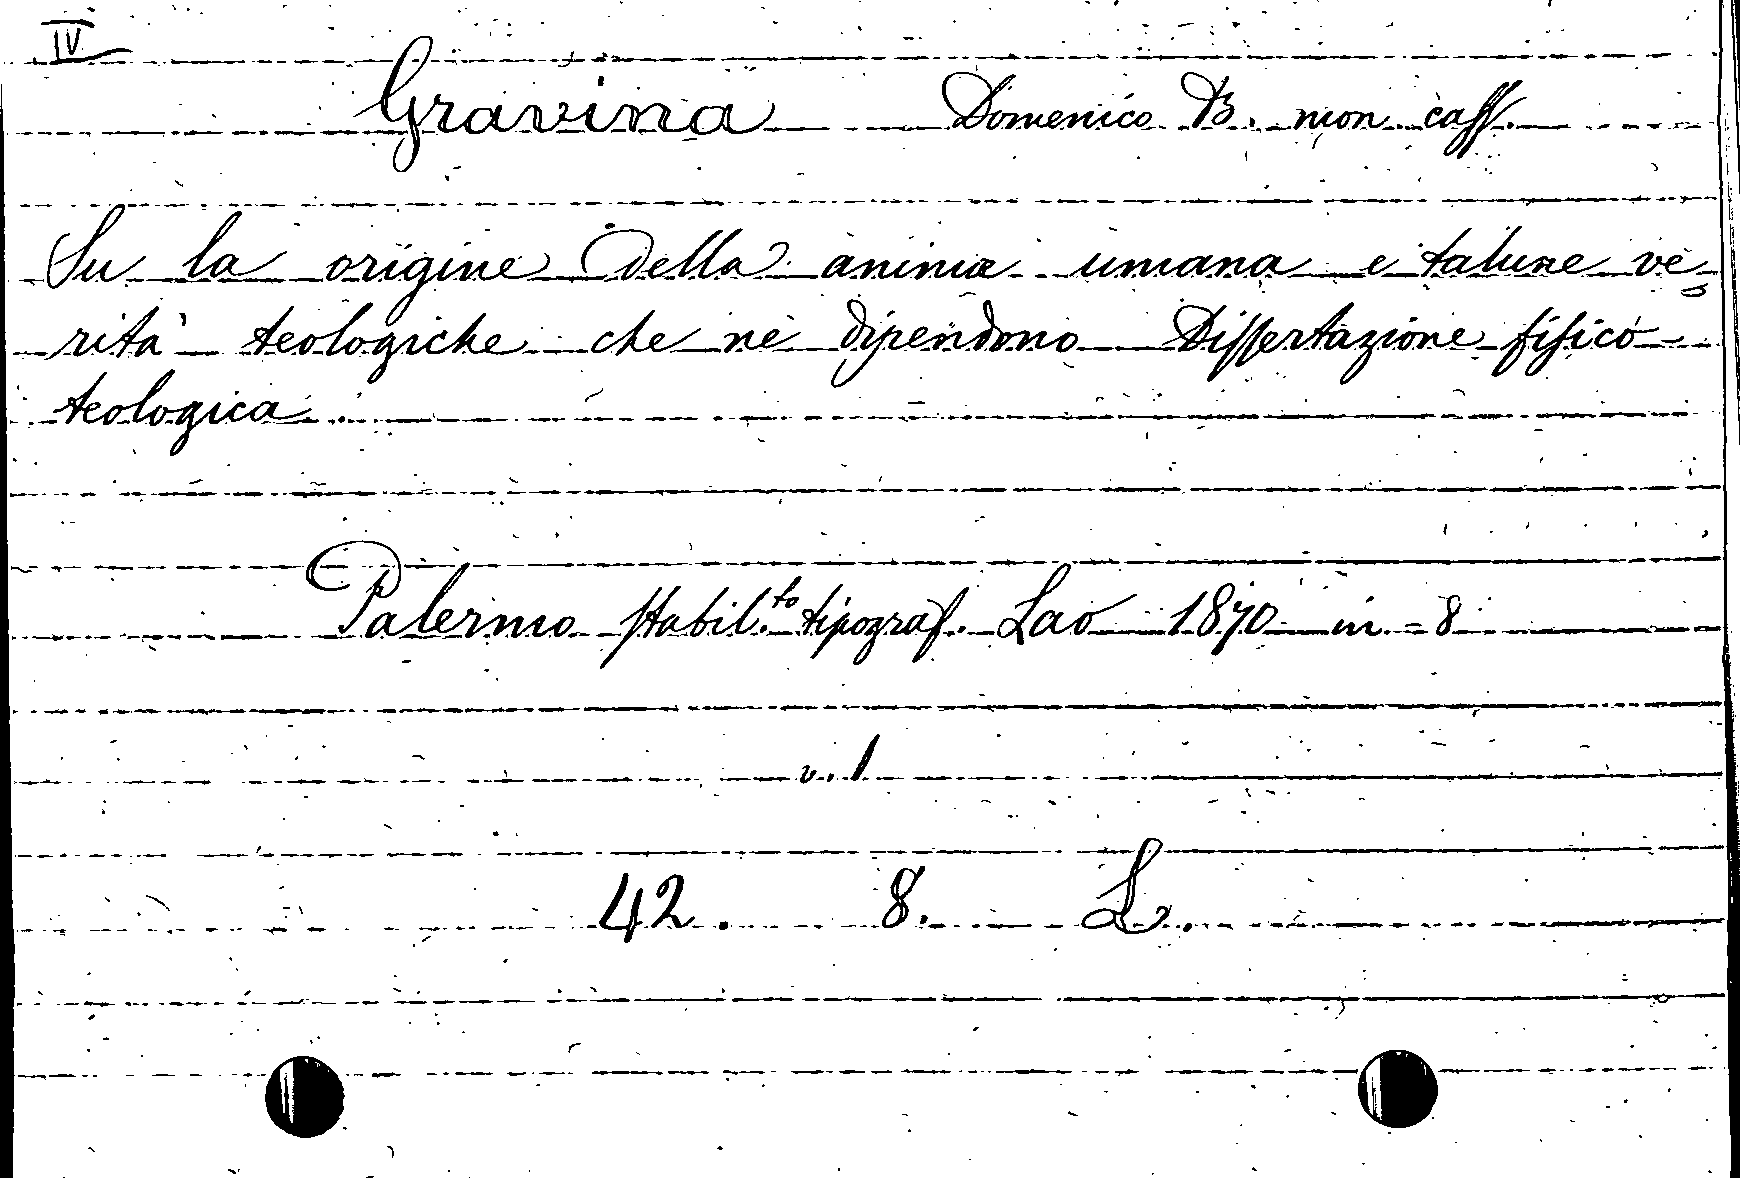 IV
Gravina Domenico B. mon. cass.
Su la origine della anima umana e talune ve=
rità teologiche che ne dipendono Dissertazione fisico
teologica.
Palermo Stabil.to tipograf. Lao 1870 in-8
v. 1
42. 8. L.